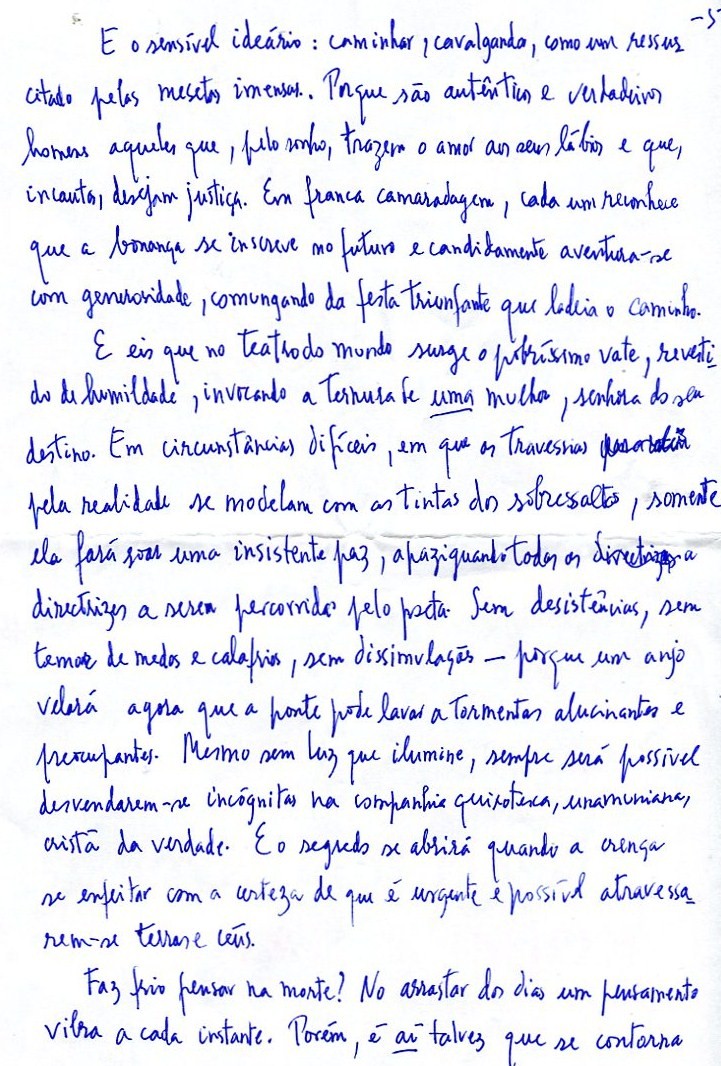 -5-
E o sensível ideário: caminhar, cavalgando, como um ressus
citado pelas mesetas imensas. Porque são autênticos e verdadeiros
homens aqueles que, pelo sonho, trazem o amor aos seus lábios e que,
incautos, desejam justiça. Em franca camaradagem, cada um reconhece
que a bonança se inscreve no futuro e candidamente aventura-se
com generosidade, comungando da festa triunfante que ladeia o caminho.
E eis que no teatro do mundo surge o pobríssimo vate, revesti
do de humildade, invocando a ternura de uma mulher, senhora do seu
destino. Em circunstâncias difíceis, em que as travessias
pela realidade se modelam com as tintas dos sobressaltos, somente
ela fará soar uma insistente paz, apaziguando todas as directrizes a
directrizes a serem percorridas pelo poeta. Sem desistências, sem
temor de medos e calafrios, sem dissimulações — porque um anjo
velará agora que a ponte pode levar a tormentas alucinantes e
preocupantes. Mesmo sem luz que ilumine, sempre será possível
desvendarem-se incógnitas na companhia quixotesca, unamuniana,
cristã da verdade. E o segredo se abrirá quando a crença
se enfeitar com a certeza de que é urgente e possível atravessa
rem-se terras e céus.
Faz frio pensar na morte? No arrastar dos dias um pensamento
vibra a cada instante. Porém, é aí talvez que se contorna